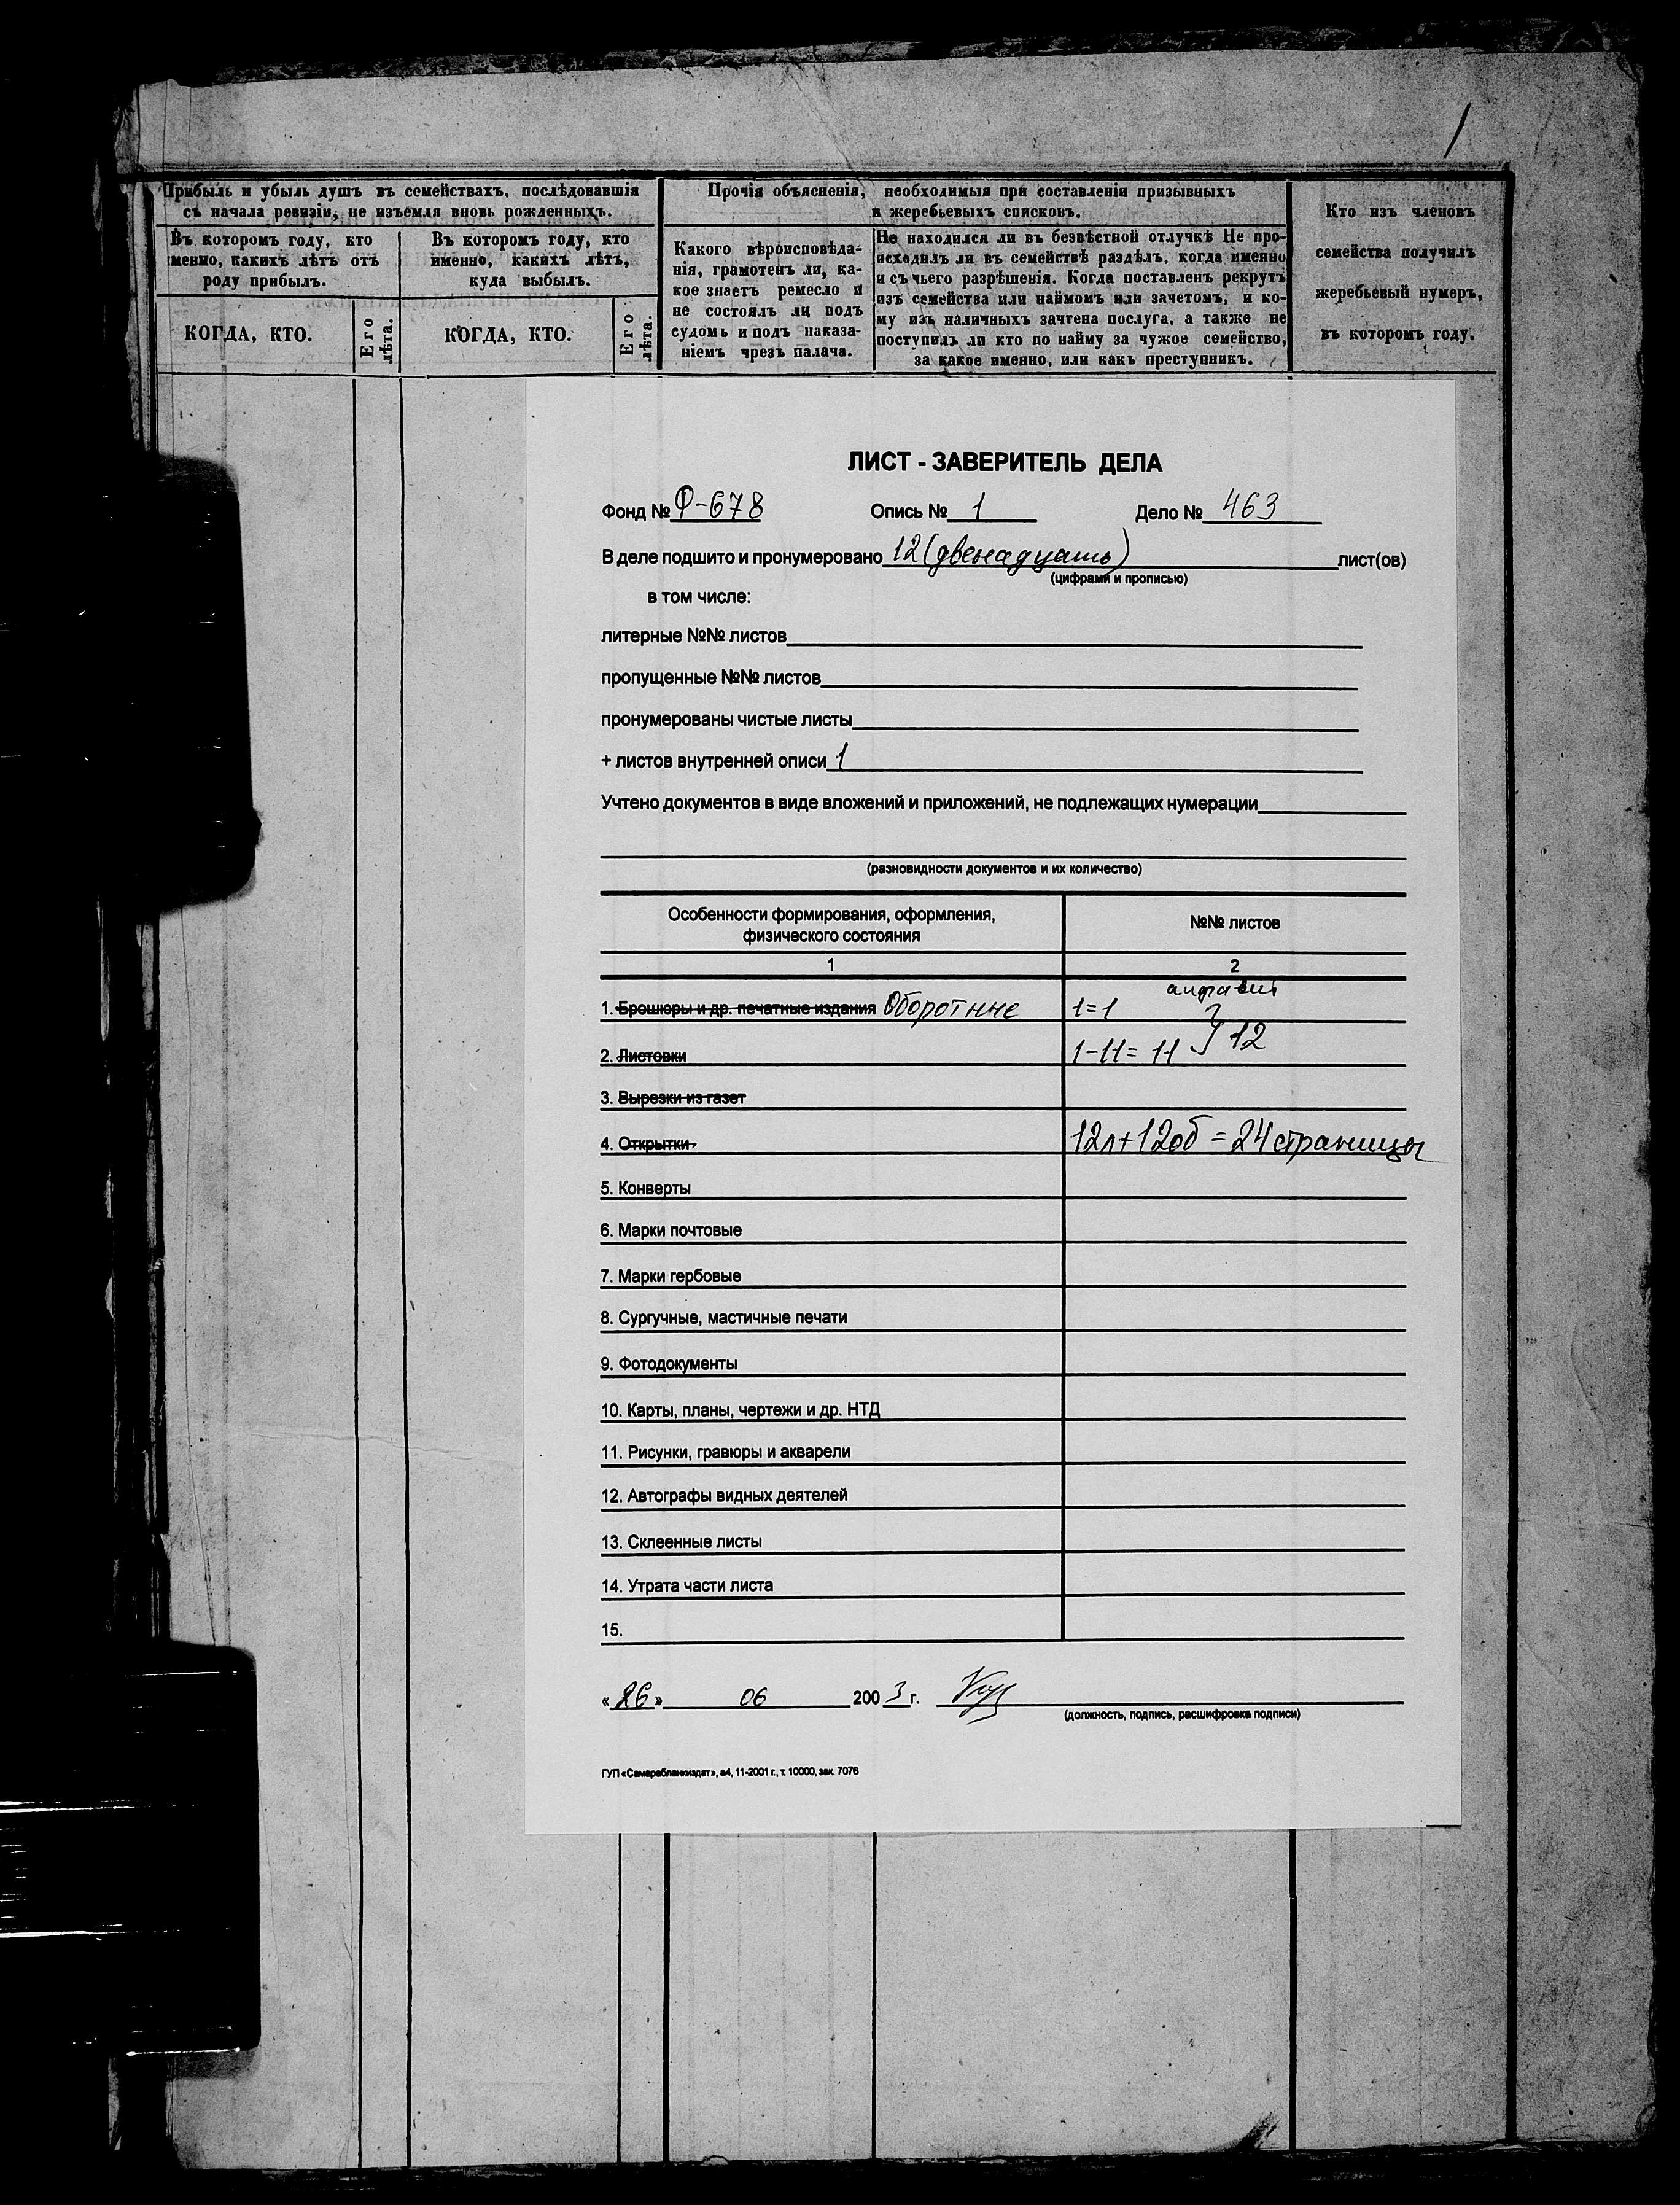 1
Прибыль и убыль душъ въ семействахъ, послѣдовавшія
съ начала ревизіи, не изъемля вновь рожденныхъ.
Въ которомъ году, кто
именно, какихъ лѣтъ отъ
роду прибылъ.
Въ которомъ году, кто
именно, какихъ лѣтъ,
куда выбылъ.
КОГДА, КТО.
Его
лѣта.
КОГДА, КТО.
Его
лѣта.
Прочія объясненія, необходимыя при составленіи призывныхъ
и жеребьевыхъ списковъ.
Какого вѣроисповѣда-
нія, грамотенъ ли, ка-
кое знаетъ ремесло и
не состоялъ ли подъ
судомъ и подъ наказа-
ніемъ чрезъ палача.
Не находился ли въ безвѣстной отлучкѣ Не про-
исходилъ ли въ семействѣ раздѣлъ, когда именно
и съ чьего разрѣшенія. Когда поставленъ рекрутъ
изъ семейства или наймомъ или зачетомъ, и ко-
му изъ наличныхъ зачтена послуга, а также не
поступилъ ли кто по найму за чужое семейство,
за какое именно, или какъ преступникъ.
Кто изъ членовъ
семейства получилъ
жеребьевый нумеръ,
въ которомъ году.
ЛИСТ - ЗАВЕРИТЕЛЬ ДЕЛА
Фонд № Ф-678 Опись № 1 Дело № 463
В деле подшито и пронумеровано 12 (двенадцать) лист(ов)
(цифрами и прописью)
в том числе:
литерные №№ листов
пропущенные №№ листов
пронумерованы чистые листы
+ листов внутренней описи 1
Учтено документов в виде вложений и приложений, не подлежащих нумерации
(разновидности документов и их количество)
Особенности формирования, оформления,
физического состояния
№№ листов
1 2
алфавит
1. Брошюры и др. печатные издания Оборотные 1=1
2. Листовки 1-11= 11 } 12
3. Вырезки из газет
4. Открытки 12л+12об = 24 страницы
5. Конверты
6. Марки почтовые
7. Марки гербовые
8. Сургучные, мастичные печати
9. Фотодокументы
10. Карты, планы, чертежи и др. НТД
11. Рисунки, гравюры и акварели
12. Автографы видных деятелей
13. Склеенные листы
14. Утрата части листа
15.
«26» 06 2003 г.
(должность, подпись, расшифровка подписи)
ГУП «Самарабланкиздат», а4, 11-2001 г., т. 10000, зак. 7076